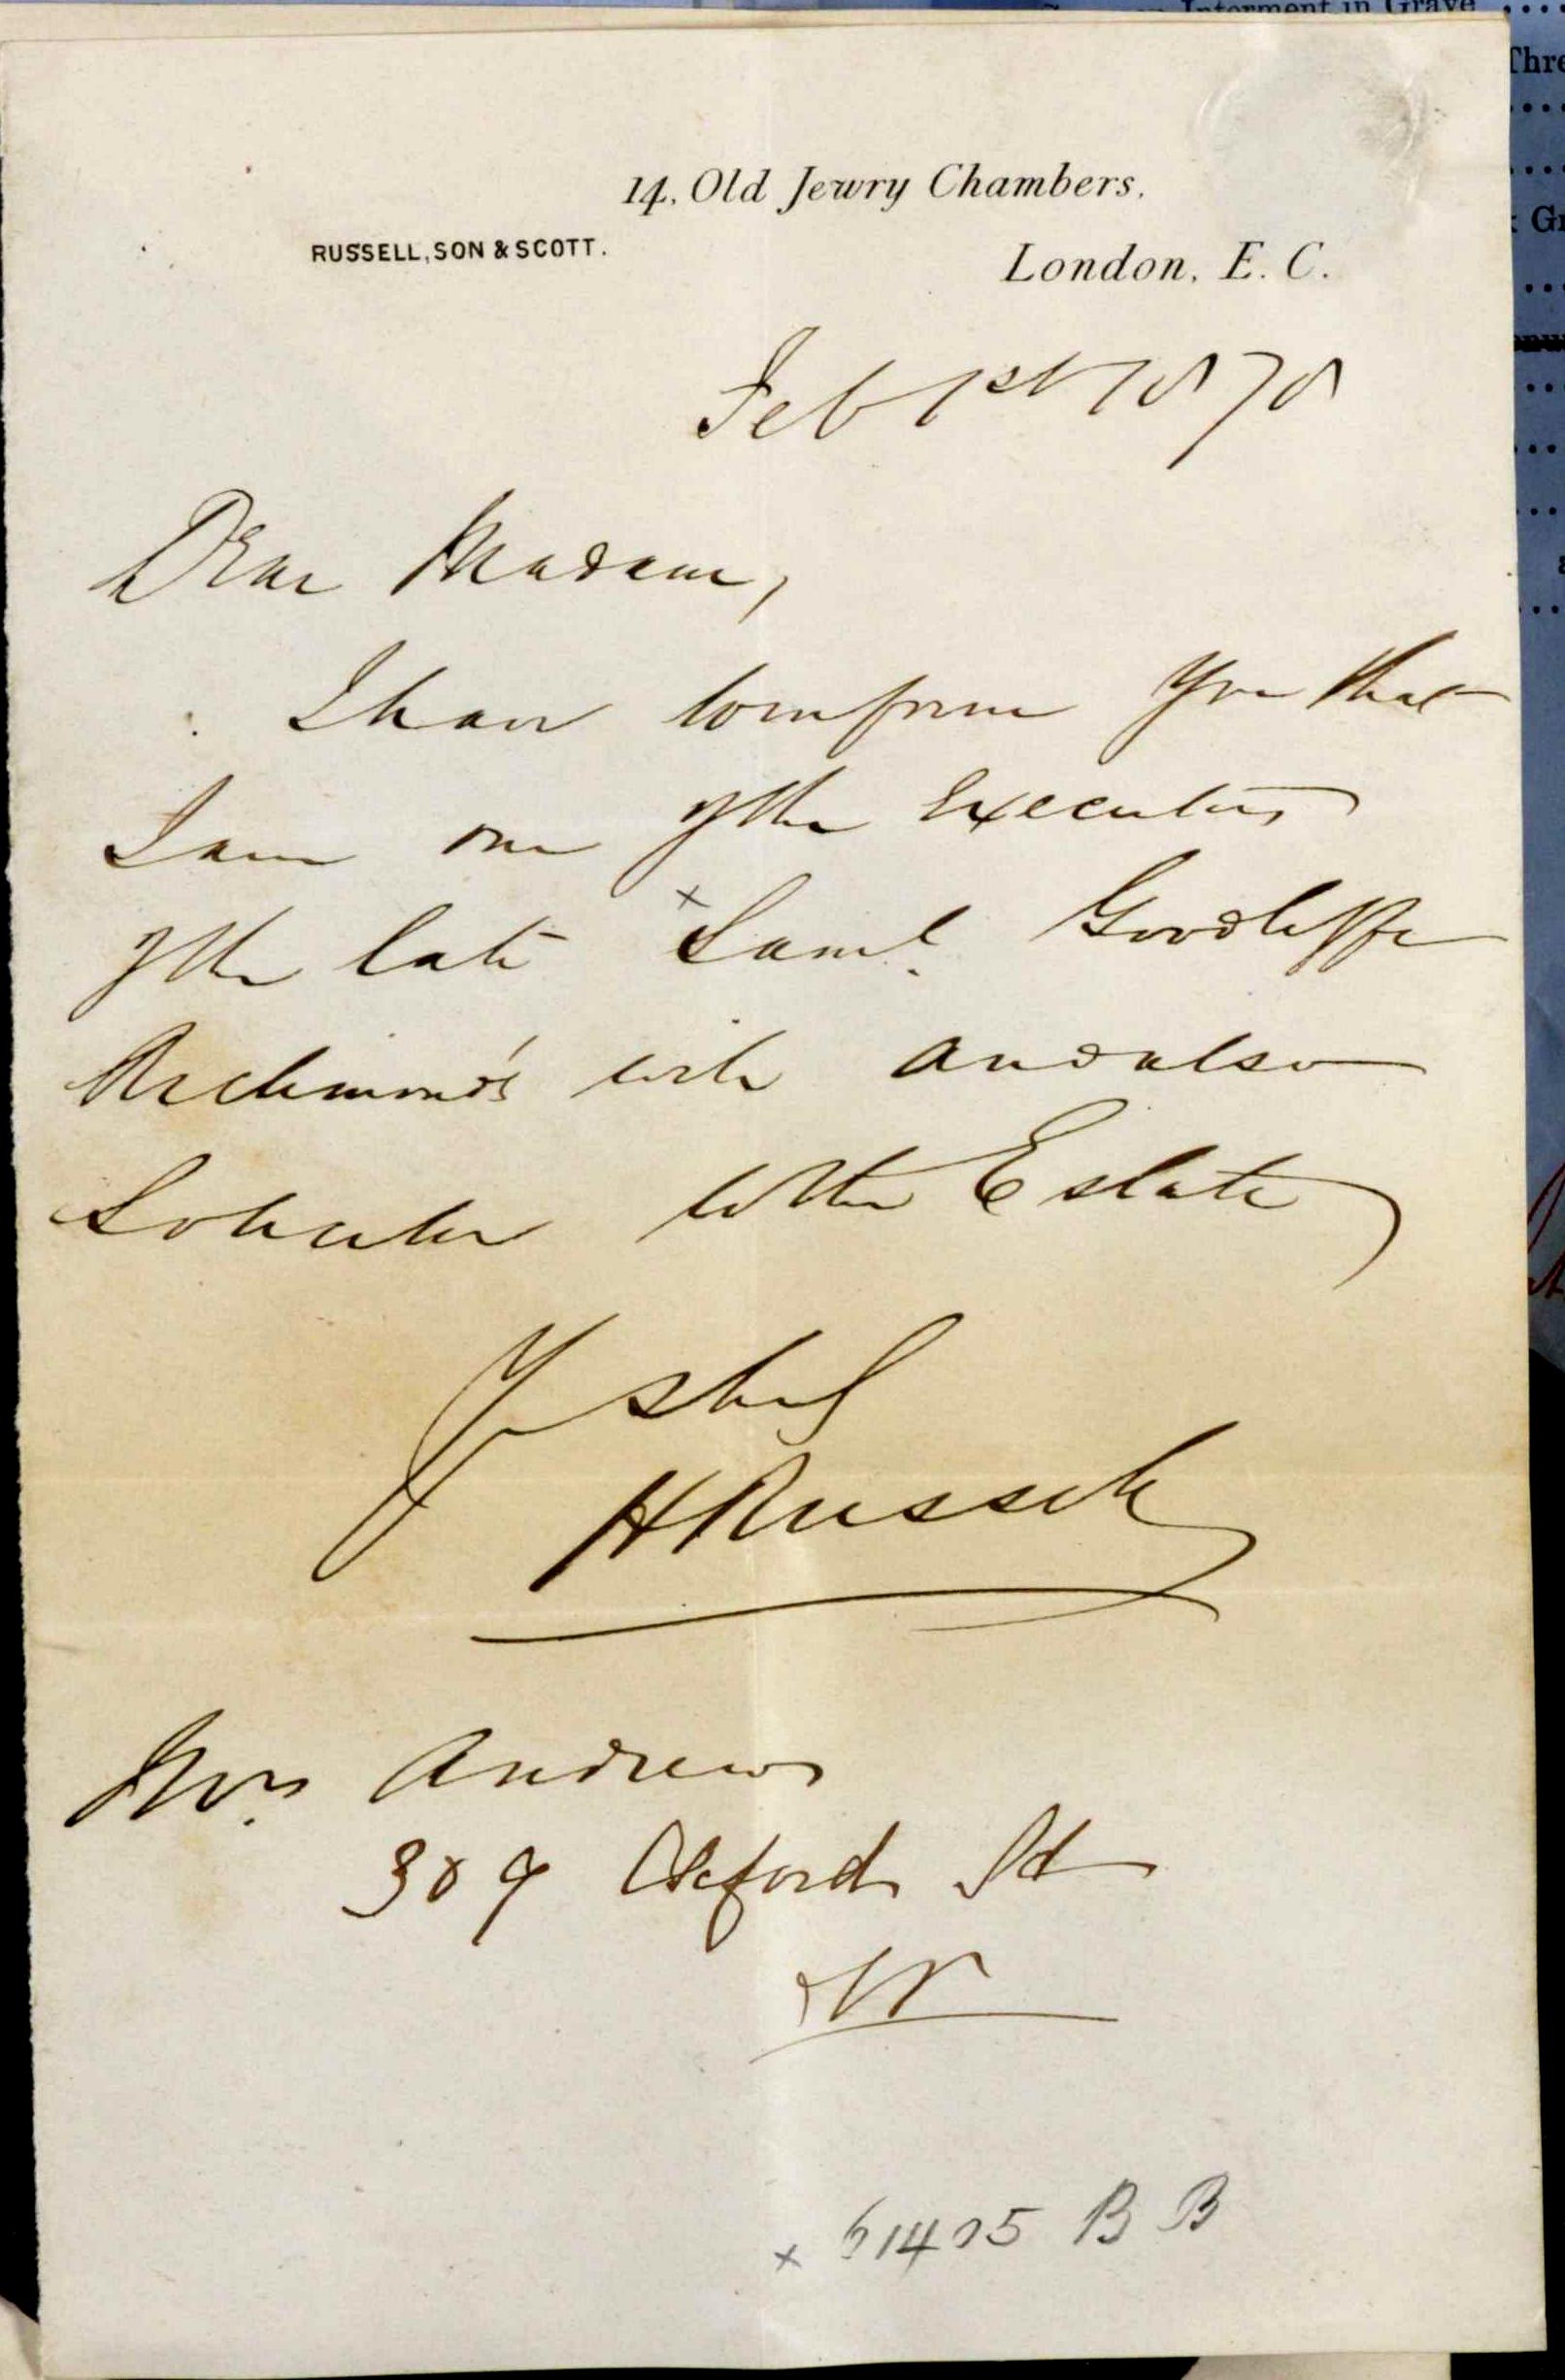 Interment in Grave
Thre
Gr
14, Old Jewry Chambers,
RUSSELL, SON & SCOTT.
London, E. C.
Feb 1st 1878
Dear Madam,
I have to inform you that
I am one of the Executors
of the late x Saml. Goodliffe
Richmond's will and also
Solicitor to the Estate
Yrs
H Russell
Mrs. Andrews
309 Oxford St
W
x 61405 B B